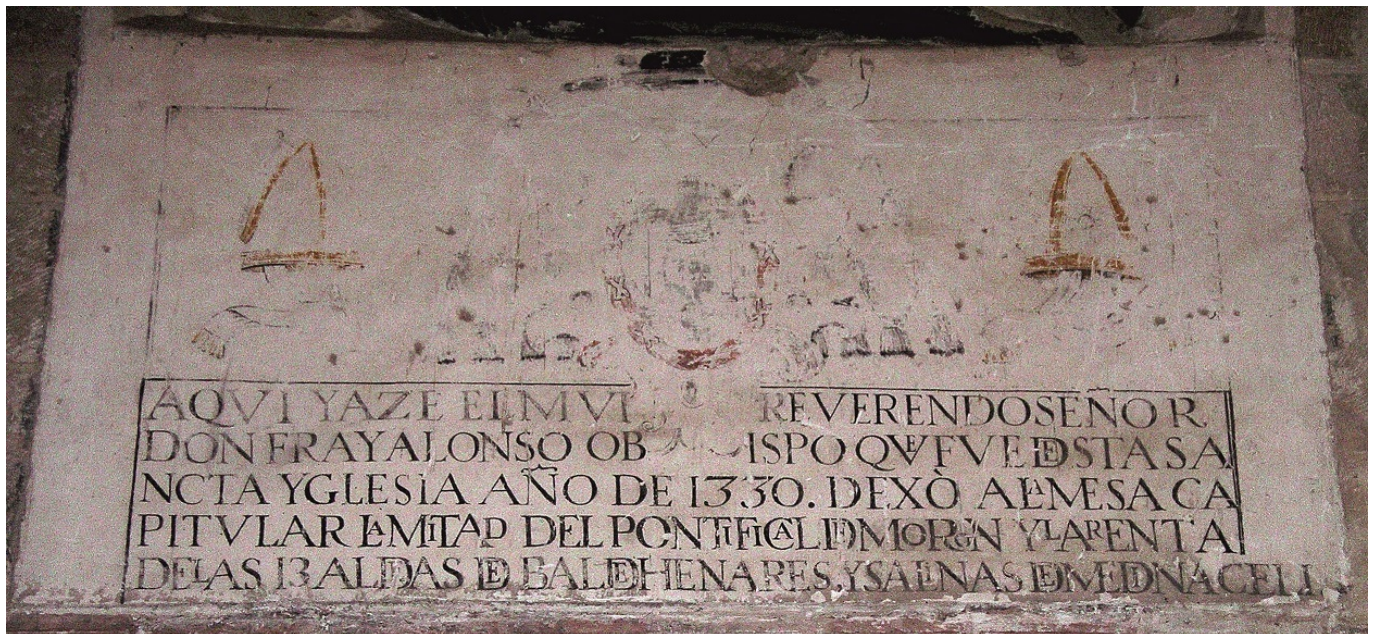 AQVI YAZE EL MVI REVERENDO SEÑOR
DON FRAY ALONSO OBISPO QVE FVE DESTA SA
NCTA YGLESIA AÑO DE 1330. DEXÒ A LA MESA CA
PITVLAR LA MITAD DEL PONTIFICAL DE MORON Y LA RENTA
DE LAS 13 ALDEAS DE BALDEHENARES, Y SALINAS DE MEDINACELI